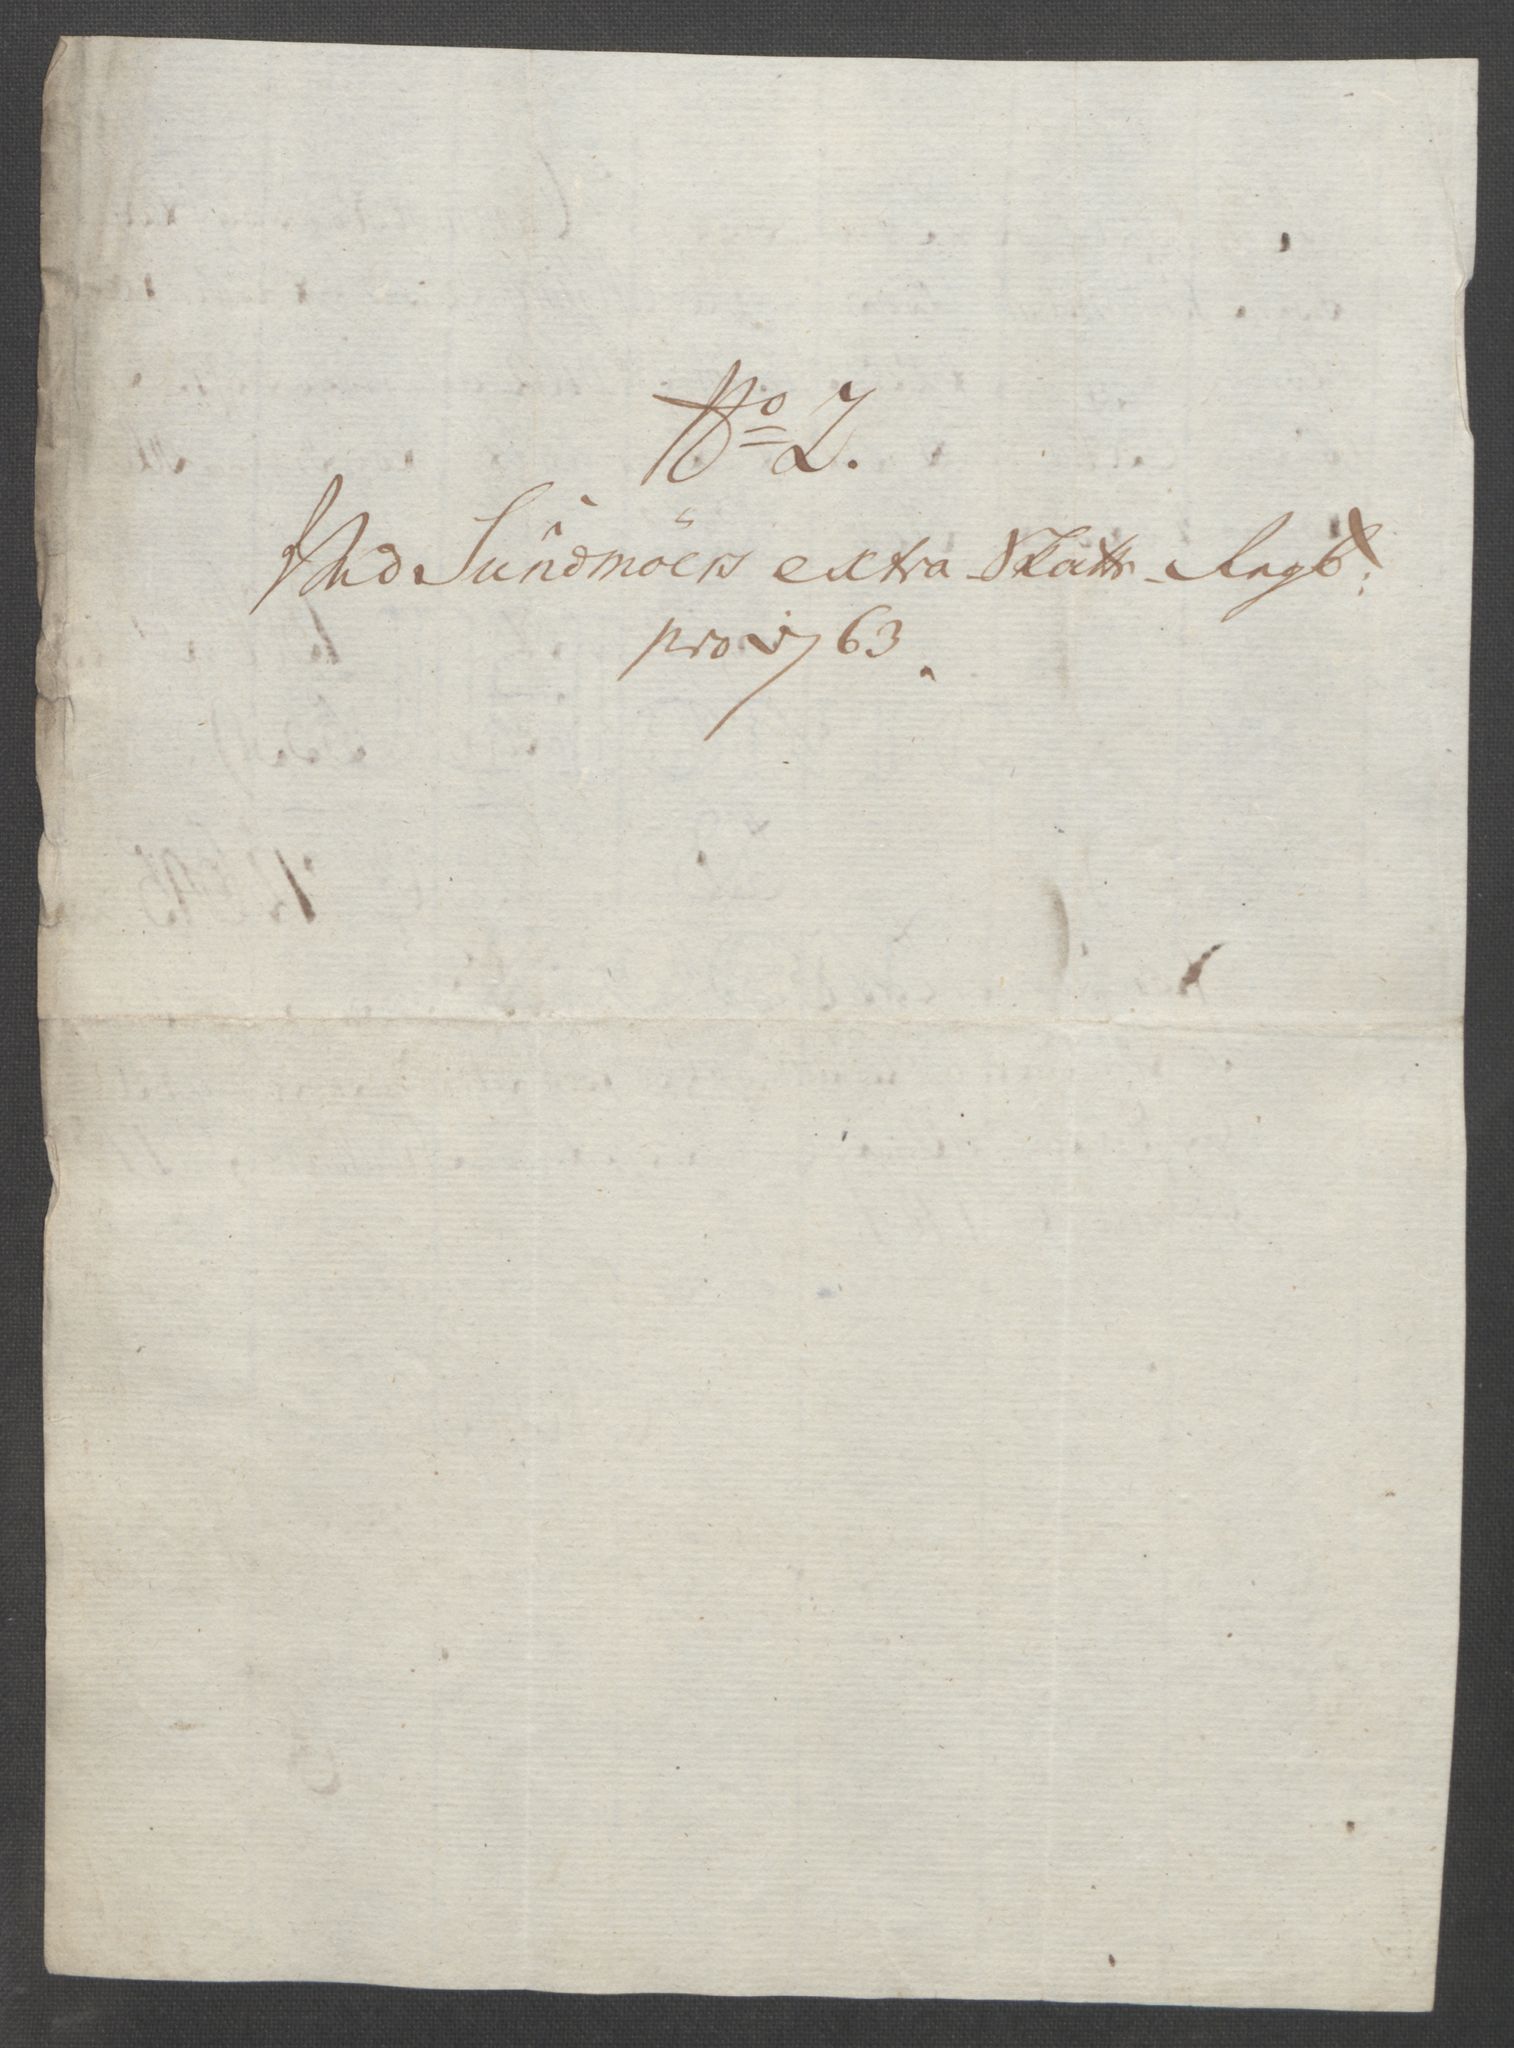 No 2.
Ved Sundmöers extra Skatte-Regb:
pro 1763.